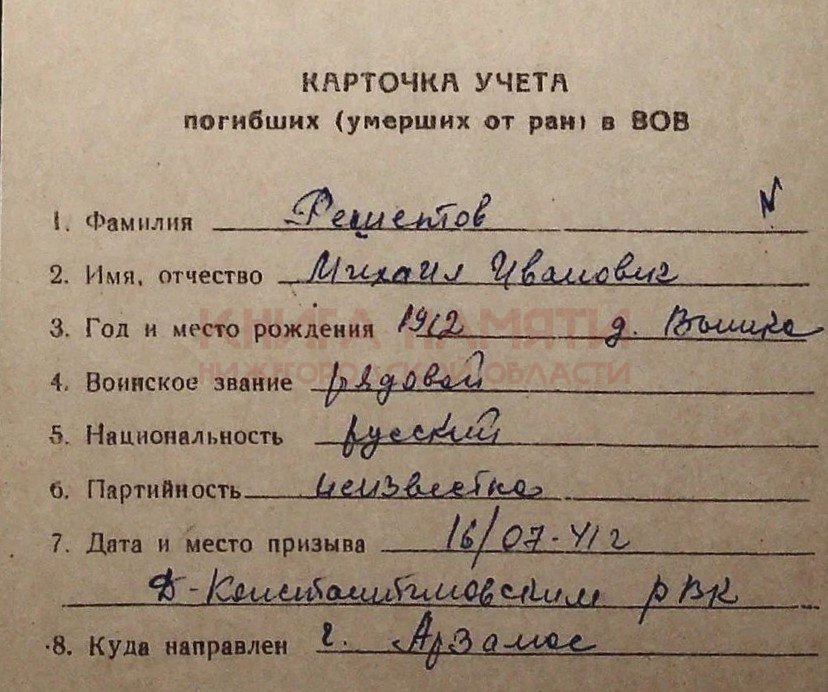 КАРТОЧКА УЧЕТА
погибших (умерших от ран) в ВОВ
1. Фамилия Решетов
2. Имя, отчество Михаил Иванович
3. Год и место рождения 1912 д. Вышка
КНИГА ПАМЯТИ
НИЖЕГОРОДСКОЙ ОБЛАСТИ
4. Воинское звание рядовой
5. Национальность русский
6. Партийность неизвестно
7. Дата и место призыва 16/07-41г
Д-Константиновским РВК
8. Куда направлен г. Арзамас